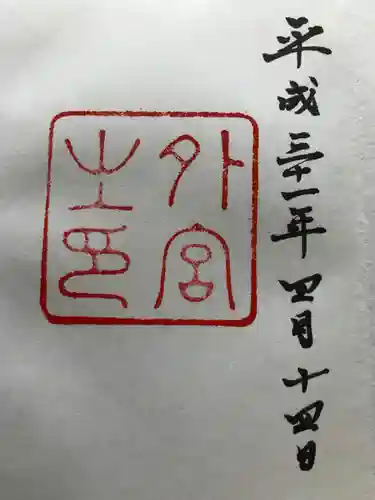 平成三十一年四月十四日
外宮
之印